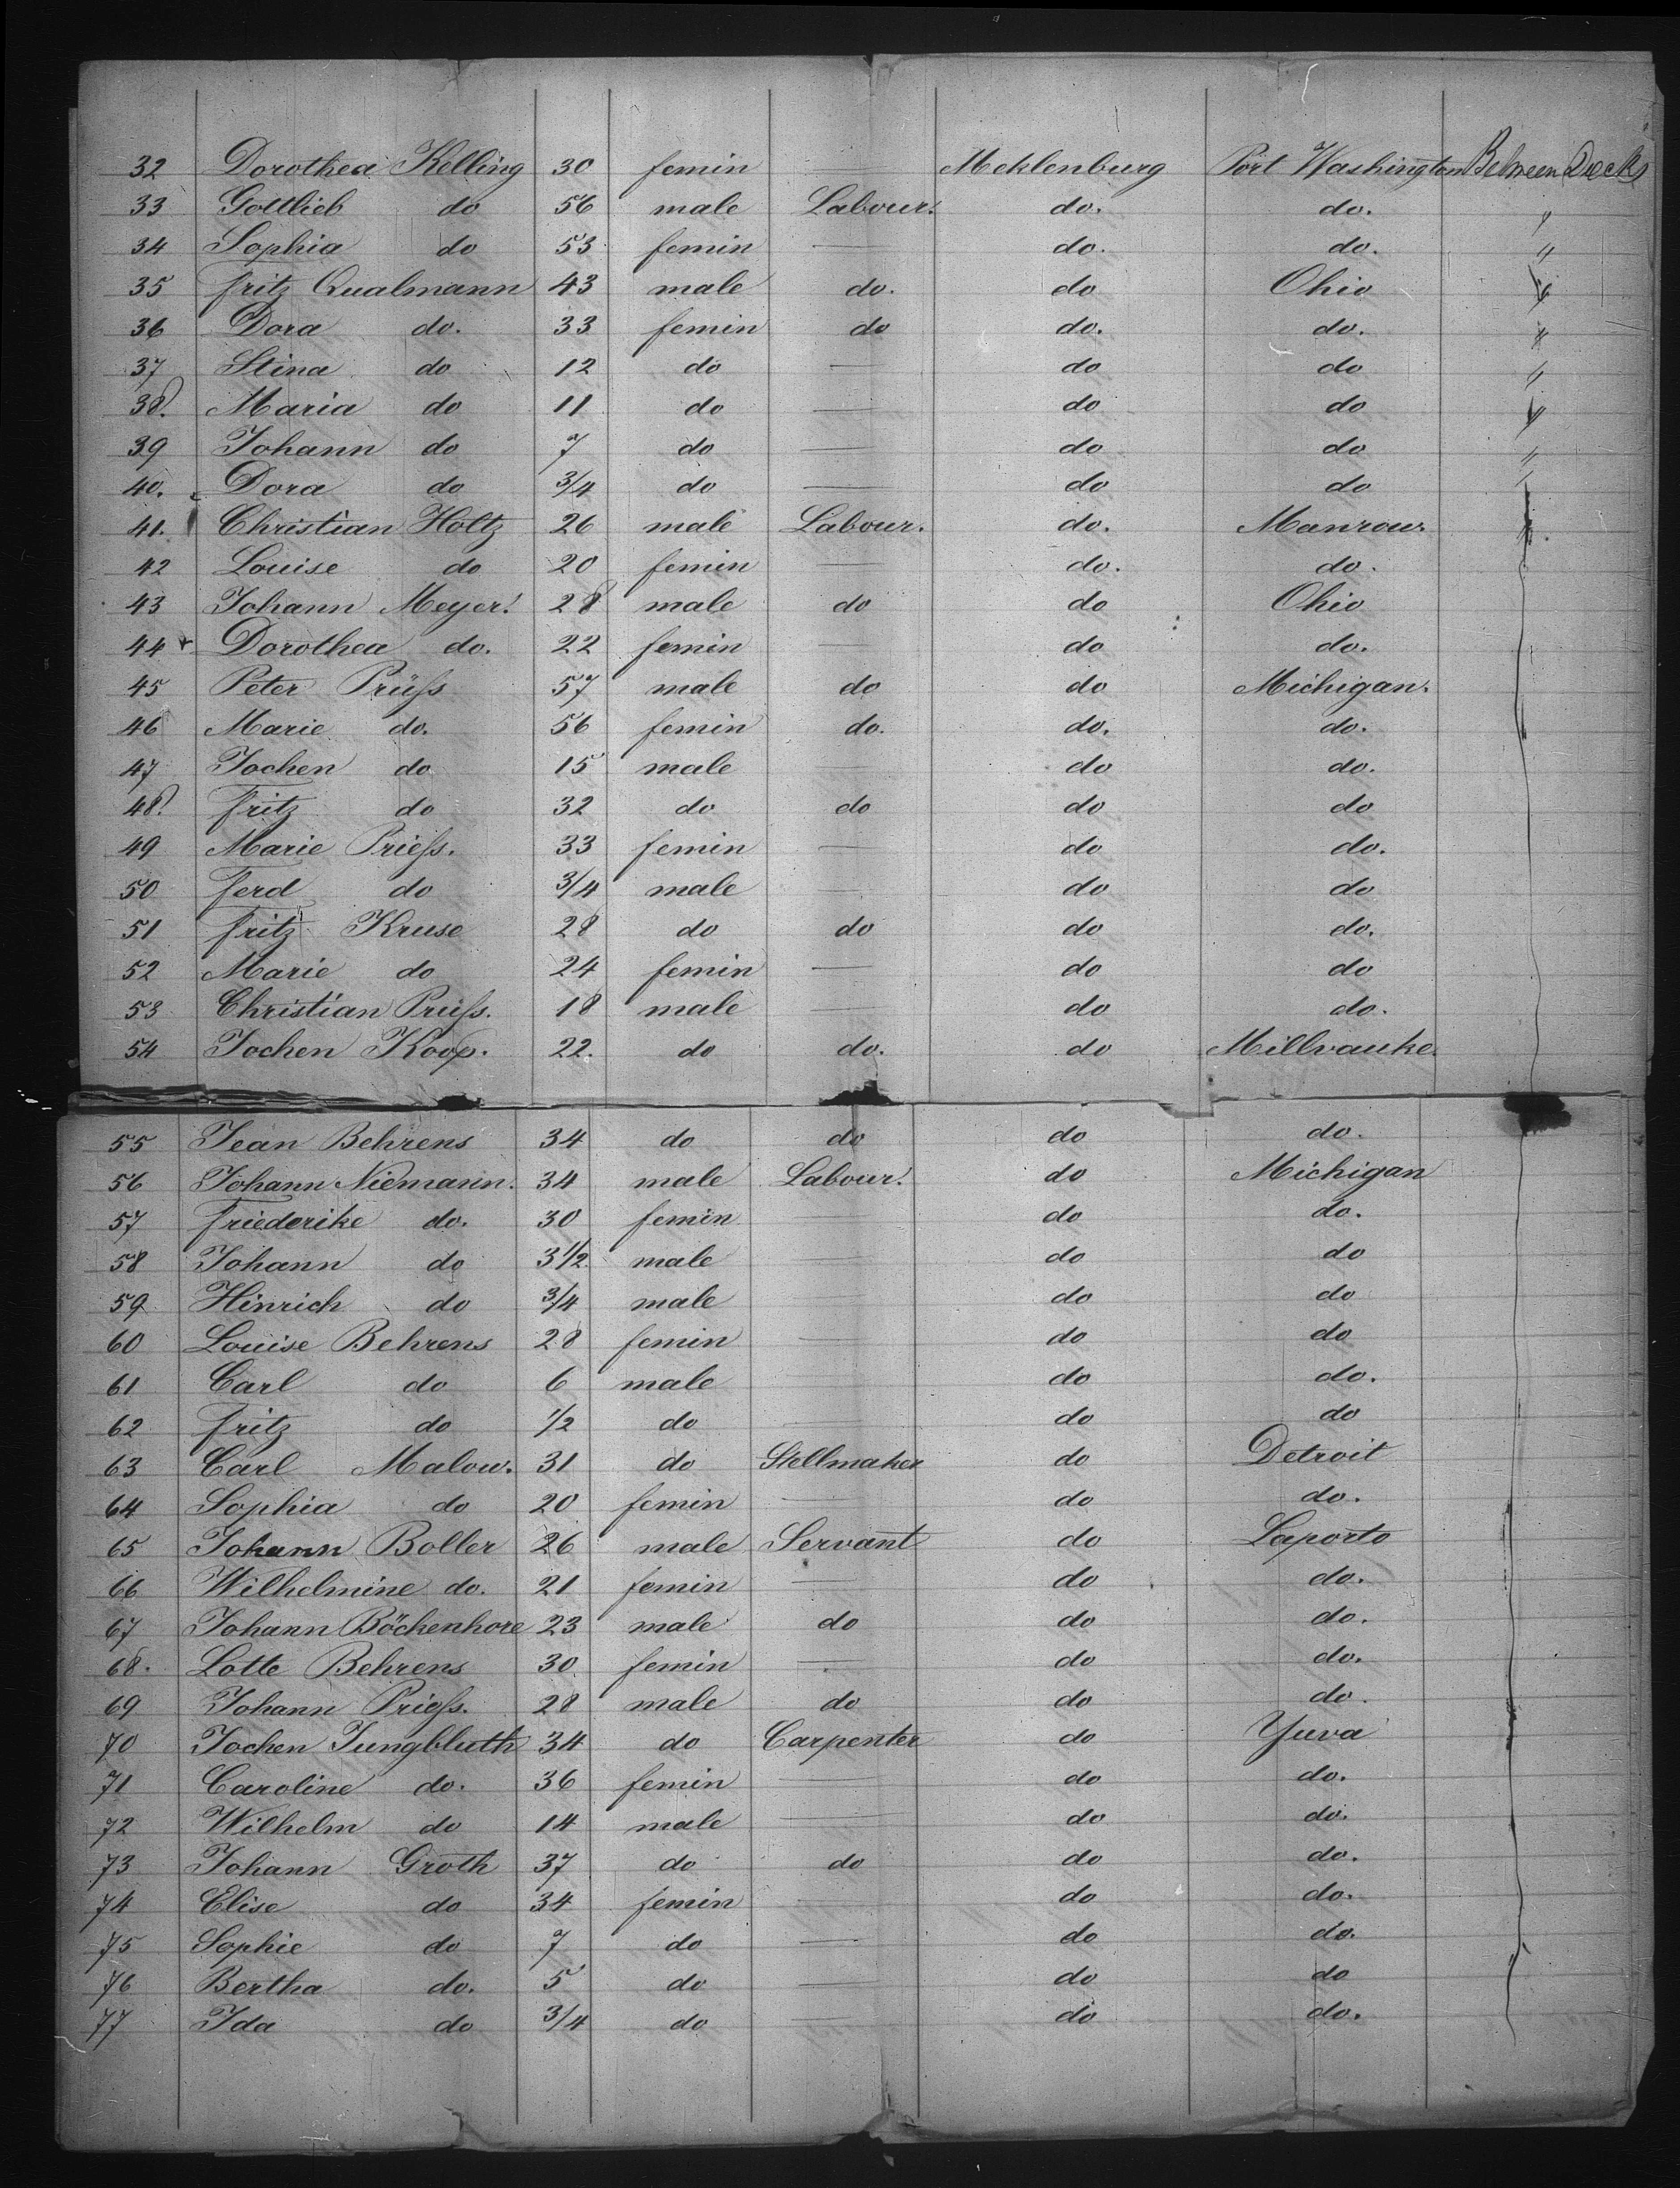 32 Dorothea Kelling 30 femin Meklenburg Port Washington Between Decks
33 Gottlieb do 56 male Labour. do. do. "
34 Sophia do 53 femin — do. do. "
35 Fritz Qualmann 43 male do. do Ohio "
36 Dora do. 33 femin do do. do. "
37 Stina do 12 do — do do "
38. Maria do 11 do — do do "
39 Johann do 7 do — do do "
40. Dora do 3/4 do — do do "
41. Christian Holtz 26 male Labour. do. Manrow. "
42 Louise do 20 femin — do. do.
43 Johann Meyer. 28 male do do Ohio
44 Dorothea do. 22 femin — do do.
45 Peter Prüſs 57 male do do Michigan.
46 Marie do. 56 femin do. do. do.
47 Jochen do 15 male — do do.
48. Fritz do 32 do do do do
49 Marie Prieſs. 33 femin — do do.
50 Ferd do 3/4 male — do do
51 Fritz Kruse 28 do do do do.
52 Marie do 24 femin — do do
53 Christian Prüſs. 18 male — do do.
54 Jochen Koop. 22. do do. do Millvauke.
55 Jean Behrens 34 do do do do.
56 Johann Niemann. 34 male Labour. do Michigan
57 Friederike do. 30 femin — do do.
58 Johann do 3 1/2 male — do do
59 Hinrich do 3/4 male — do do
60 Louise Behrens 28 femin — do do
61 Carl do 6 male — do do.
62 Fritz do 1/2 do — do do
63 Carl Malow. 31 do Stellmaker do Detroit
64 Sophia do 20 femin — do do.
65 Johann Boller 26 male Servant do Laporto
66 Wilhelmine do. 21 femin — do do.
67 Johann Böckenhore 23 male do do do.
68. Lotte Behrens 30 femin — do do.
69 Johann Prieſs. 28 male do do do.
70 Jochen Jungbluth 34 do Carpenter do Yuva
71 Caroline do. 36 femin — do do.
72 Wilhelm do 14 male — do do.
73 Johann Groth 37 do do do do.
74 Elise do 34 femin — do do.
75 Sophie do 7 do — do do.
76 Bertha do. 5 do — do do
77 Ida do 3/4 do — do do.